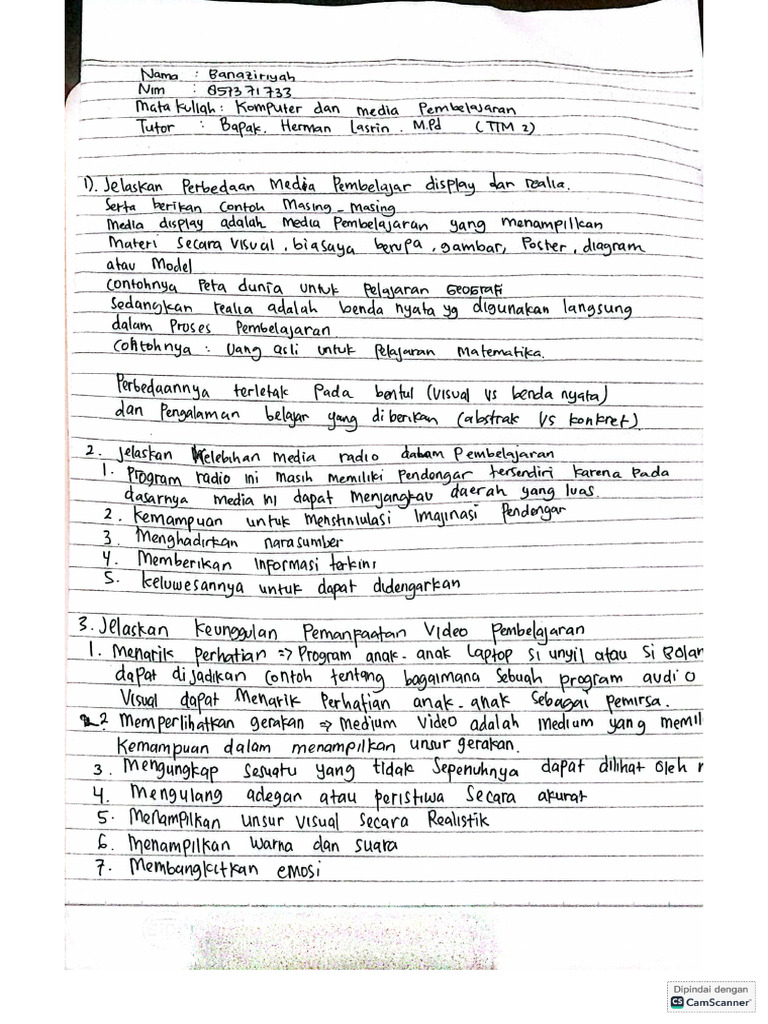 Nama : Banaziriyah
Nim : 857371733
Mata kuliah : Komputer dan media Pembelajaran
Tutor : Bapak. Herman Lasrin . M.Pd (TTM 2)
1). Jelaskan Perbedaan Media Pembelajar display dan realia.
Serta berikan Contoh Masing - Masing
Media display adalah Media Pembelajaran yang menampilkan
Materi Secara Visual , biasaya berupa , gambar, Poster , diagram
atau Model
Contohnya Peta dunia untuk Pelajaran GEOGRAFI
Sedangkan realia adalah benda nyata yg digunakan langsung
dalam Proses Pembelajaran
Contohnya : Uang asli untuk Pelajaran Matematika.
Perbedaannya terletak Pada bentul (Visual Vs benda nyata)
dan Pengalaman belajar yang diberikan (abstrak VS konkret)
2. Jelaskan Kelebihan media radio dalam Pembelajaran
1. Program radio ini masih memiliki Pendongar tersendiri karena Pada
dasarnya media ini dapat Menjangkau daerah yang luas
2. Kemampuan untuk Menstiniulasi Imajinasi Pendengar
3. Menghadirkan narasumber
4. Memberikan Informasi terkini
5. keluwesannya untuk dapat didengarkan
3. Jelaskan Keunggulan Pemanfaatan Video Pembelajaran
1. Menarik perhatian => Program anak-anak Laptop Si unyil atau Si Bolar
dapat dijadikan Contoh tentang bagaimana Sebuah program audio
Visual dapat Menarik Perhatian anak-anak Sebagai pemirsa.
2. Memperlihatkan gerakan => Medium Video adalah Medium yang memil
Kemampuan dalam menampilkan unsur gerakan.
3. Mengungkap Sesuatu yang tidak Sepenuhnya dapat dilihat oleh r
4. Mengulang adegan atau peristiwa Secara akurat
5. Menampilkan unsur Visual Secara Realistik
6. Menampilkan Warna dan suara
7. Membangkitkan emosi
Dipindai dengan
CS CamScanner